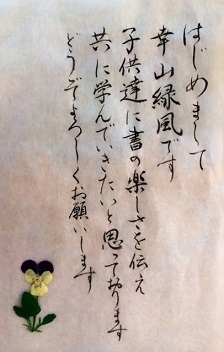 はじめまして
幸山緑風です
子供達に書の楽しさを伝え
共に学んでいきたいと思っております
どうぞよろしくお願いします